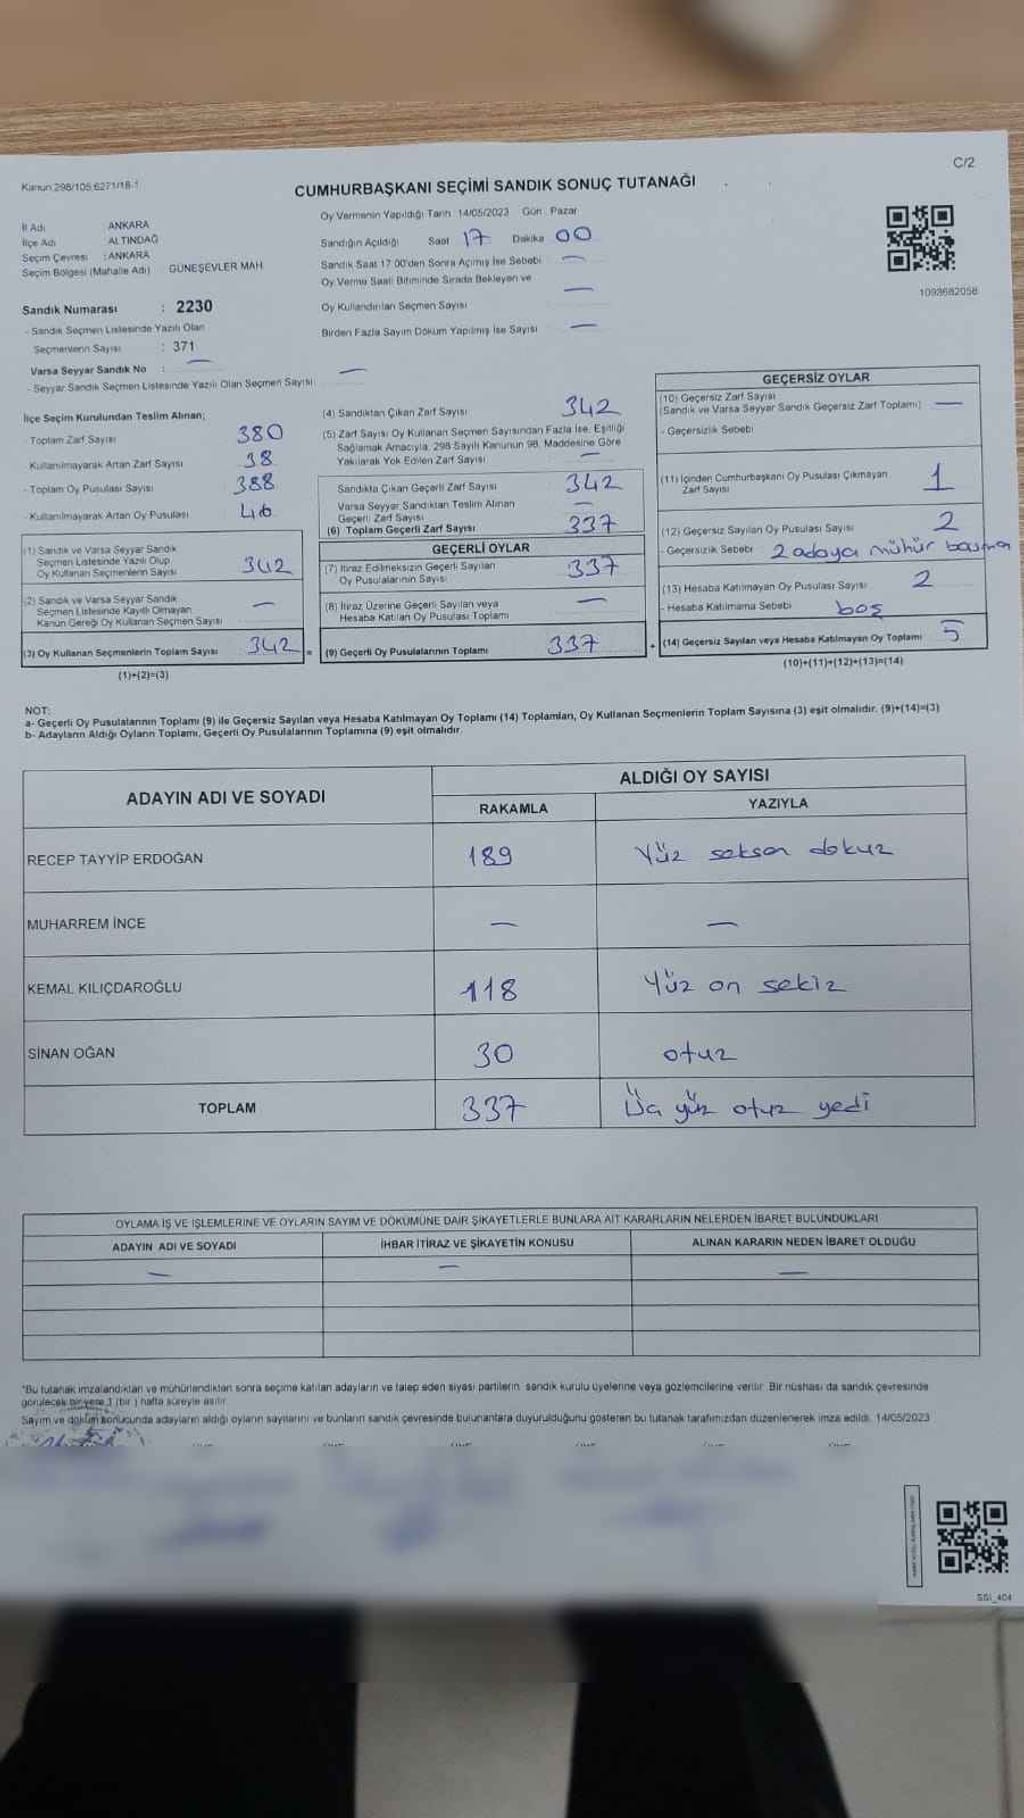 Kanun 298/105,6271/18-1
C/2
CUMHURBAŞKANI SEÇİMİ SANDIK SONUÇ TUTANAĞI
İl Adı : ANKARA
İlçe Adı : ALTINDAĞ
Seçim Çevresi : ANKARA
Seçim Bölgesi (Mahalle Adı) GÜNEŞEVLER MAH.
Sandık Numarası : 2230
- Sandık Seçmen Listesinde Yazılı Olan
Seçmenlerin Sayısı : 371
Varsa Seyyar Sandık No : —
- Seyyar Sandık Seçmen Listesinde Yazılı Olan Seçmen Sayısı: —
Oy Vermenin Yapıldığı Tarih 14/05/2023 Gün : Pazar
Sandığın Açıldığı Saat 17 Dakika 00
Sandık Saat 17:00'den Sonra Açılmış İse Sebebi —
Oy Verme Saati Bitiminde Sırada Bekleyen ve
Oy Kullandırılan Seçmen Sayısı —
Birden Fazla Sayım Döküm Yapılmış İse Sayısı —
1093682058
İlçe Seçim Kurulundan Teslim Alınan;
Toplam Zarf Sayısı 380
Kullanılmayarak Artan Zarf Sayısı 38
- Toplam Oy Pusulası Sayısı 388
- Kullanılmayarak Artan Oy Pusulası 46
(1) Sandık ve Varsa Seyyar Sandık
Seçmen Listesinde Yazılı Olup
Oy Kullanan Seçmenlerin Sayısı 342
(2) Sandık ve Varsa Seyyar Sandık
Seçmen Listesinde Kayıtlı Olmayan
Kanun Gereği Oy Kullanan Seçmen Sayısı —
(3) Oy Kullanan Seçmenlerin Toplam Sayısı 342 =
(1)+(2)=(3)
(4) Sandıktan Çıkan Zarf Sayısı 342
(5) Zarf Sayısı Oy Kullanan Seçmen Sayısından Fazla İse, Eşitliği
Sağlamak Amacıyla, 298 Sayılı Kanunun 98. Maddesine Göre
Yakılarak Yok Edilen Zarf Sayısı —
Sandıkta Çıkan Geçerli Zarf Sayısı 342
Varsa Seyyar Sandıktan Teslim Alınan
Geçerli Zarf Sayısı —
(6) Toplam Geçerli Zarf Sayısı 337
GEÇERLİ OYLAR
(7) İtiraz Edilmeksizin Geçerli Sayılan
Oy Pusulalarının Sayısı 337
(8) İtiraz Üzerine Geçerli Sayılan veya
Hesaba Katılan Oy Pusulası Toplamı —
(9) Geçerli Oy Pusulalarının Toplamı 337 +
GEÇERSİZ OYLAR
(10) Geçersiz Zarf Sayısı
(Sandık ve Varsa Seyyar Sandık Geçersiz Zarf Toplamı) —
- Geçersizlik Sebebi
(11) İçinden Cumhurbaşkanı Oy Pusulası Çıkmayan
Zarf Sayısı 1
(12) Geçersiz Sayılan Oy Pusulası Sayısı 2
- Geçersizlik Sebebi 2 adaya mühür basma
(13) Hesaba Katılmayan Oy Pusulası Sayısı 2
- Hesaba Katılmama Sebebi boş
(14) Geçersiz Sayılan veya Hesaba Katılmayan Oy Toplamı 5
(10)+(11)+(12)+(13)=(14)
NOT:
a- Geçerli Oy Pusulalarının Toplamı (9) ile Geçersiz Sayılan veya Hesaba Katılmayan Oy Toplamı (14) Toplamları, Oy Kullanan Seçmenlerin Toplam Sayısına (3) eşit olmalıdır. (9)+(14)=(3)
b- Adayların Aldığı Oyların Toplamı, Geçerli Oy Pusulalarının Toplamına (9) eşit olmalıdır.
ADAYIN ADI VE SOYADI
ALDIĞI OY SAYISI
RAKAMLA YAZIYLA
RECEP TAYYİP ERDOĞAN 189 Yüz seksen dokuz
MUHARREM İNCE — —
KEMAL KILIÇDAROĞLU 118 Yüz on sekiz
SİNAN OĞAN 30 otuz
TOPLAM 337 Üç yüz otuz yedi
OYLAMA İŞ VE İŞLEMLERİNE VE OYLARIN SAYIM VE DÖKÜMÜNE DAİR ŞİKAYETLERLE BUNLARA AİT KARARLARIN NELERDEN İBARET BULUNDUKLARI
ADAYIN ADI VE SOYADI İHBAR İTİRAZ VE ŞİKAYETİN KONUSU ALINAN KARARIN NEDEN İBARET OLDUĞU
— — —
*Bu tutanak imzalandıktan ve mühürlendikten sonra seçime katılan adayların ve talep eden siyasi partilerin sandık kurulu üyelerine veya gözlemcilerine verilir. Bir nüshası da sandık çevresinde
görülecek bir yere 1 (bir ) hafta süreyle asılır.
Sayım ve döküm sonucunda adayların aldığı oyların sayılarını ve bunların sandık çevresinde bulunanlara duyurulduğunu gösteren bu tutanak tarafımızdan düzenlenerek imza edildi. 14/05/2023
SSI_404